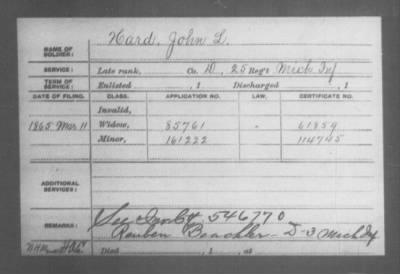 Hard, John L.
NAME OF SOLDIER:
SERVICE: Late rank, Co. D, 25 Reg't Mich Inf
TERM OF SERVICE: Enlisted , 1 Discharged , 1
DATE OF FILING. CLASS. APPLICATION NO. LAW. CERTIFICATE NO.
Invalid,
1865 Mar 11 Widow, 85761 61859
Minor, 161222 114745
ADDITIONAL SERVICES:
See 546770
REMARKS: Reuben Beachler D-3 Mich Inf
Died , 1 , at